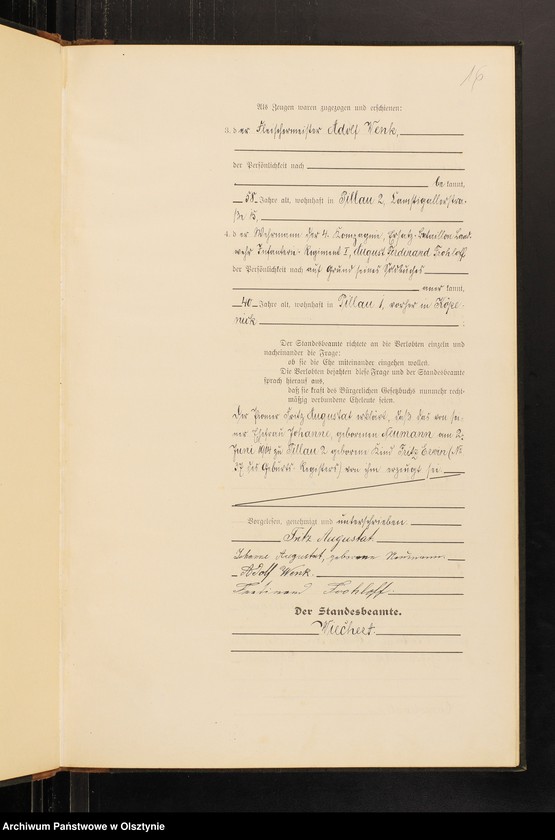 Als Zeugen waren zugezogen und erschienen:
3. der Fleischermeister Adolf Wenk,
der Persönlichkeit nach
bekannt,
58 Jahre alt, wohnhaft in Pillau 2,
ße 15,
4. der Wehrmann der 4. Kompagnie, Ersatz-Bataillon Land-
wehr Infanterie-Regiment 1, August Ferdinand Frohloff
der Persönlichkeit nach auf Grund seines Soldbuches
anerkannt,
40 Jahre alt, wohnhaft in Pillau 1, vorher in Köpe-
nick.
Der Standesbeamte richtete an die Verlobten einzeln und
nacheinander die Frage:
ob sie die Ehe miteinander eingehen wollen.
Die Verlobten bejahten diese Frage und der Standesbeamte
sprach hierauf aus,
daß sie kraft des Bürgerlichen Gesetzbuchs nunmehr recht-
mäßig verbundene Eheleute seien.
Der Fritz Augustat erklärt, daß das von sei-
ner Ehefrau Johanne, geborenen Neumann am 2.
Juni zu Pillau 2 geborene Kind Fritz Erwin (No
57 des Geburts-Registers) von ihm erzeugt sei.
Vorgelesen, genehmigt und unterschrieben
Fritz Augustat.
Johanne Augustat, geborene Neumann.
Adolf Wenk.
Ferdinand Frohloff.
Der Standesbeamte.
Wiechert.
Archiwum Państwowe w Olsztynie